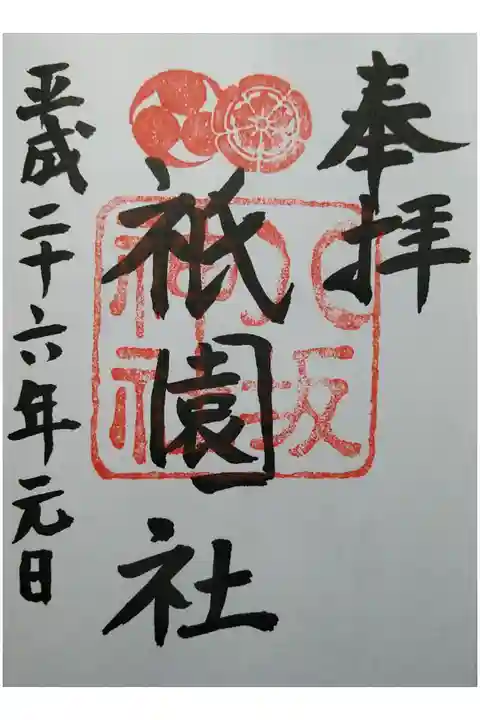 奉拝
八坂神社
祇園社
平成二十六年元日